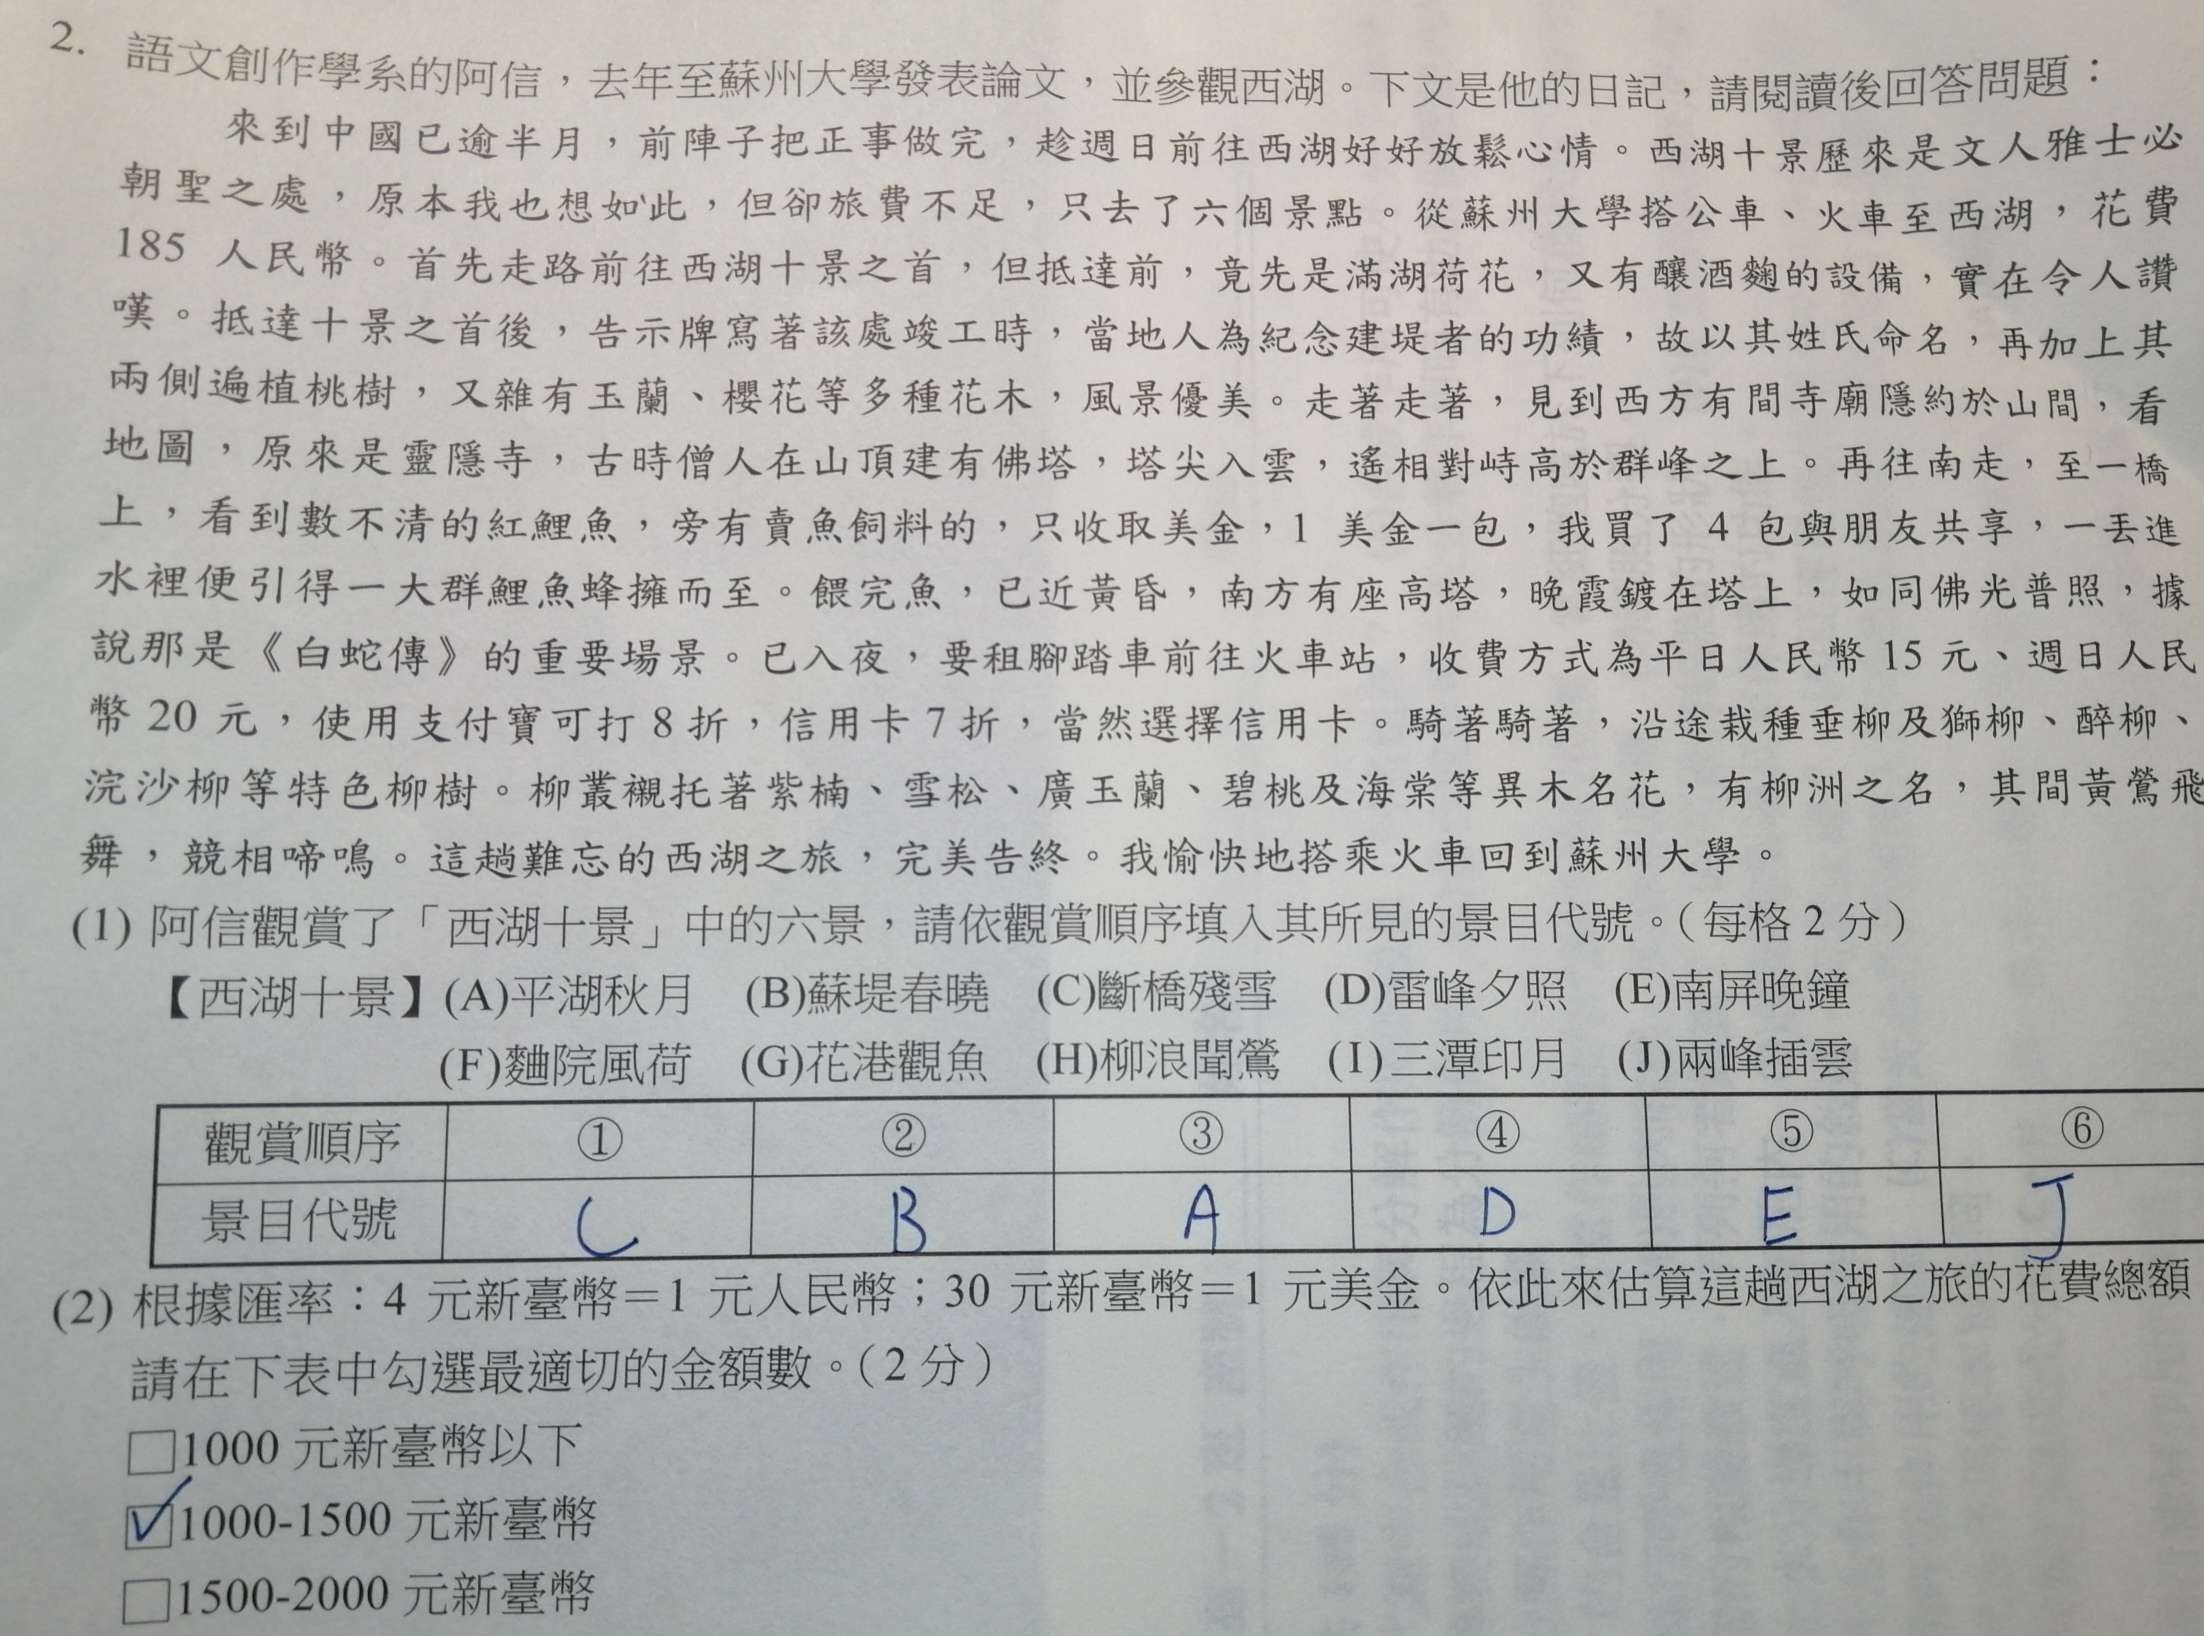 2. 語文創作學系的阿信，去年至蘇州大學發表論文，並參觀西湖。下文是他的日記，請閱讀後回答問題：
來到中國已逾半月，前陣子把正事做完，趁週日前往西湖好好放鬆心情。西湖十景歷來是文人雅士必
朝聖之處，原本我也想如此，但卻旅費不足，只去了六個景點。從蘇州大學搭公車、火車至西湖，花費
185 人民幣。首先走路前往西湖十景之首，但抵達前，竟先是滿湖荷花，又有釀酒麴的設備，實在令人讚
嘆。抵達十景之首後，告示牌寫著該處竣工時，當地人為紀念建堤者的功績，故以其姓氏命名，再加上其
兩側遍植桃樹，又雜有玉蘭、櫻花等多種花木，風景優美。走著走著，見到西方有間寺廟隱約於山間，看
地圖，原來是靈隱寺，古時僧人在山頂建有佛塔，塔尖入雲，遙相對峙高於群峰之上。再往南走，至一橋
上，看到數不清的紅鯉魚，旁有賣魚飼料的，只收取美金，1 美金一包，我買了 4 包與朋友共享，一丟進
水裡便引得一大群鯉魚蜂擁而至。餵完魚，已近黃昏，南方有座高塔，晚霞鍍在塔上，如同佛光普照，據
說那是《白蛇傳》的重要場景。已入夜，要租腳踏車前往火車站，收費方式為平日人民幣 15 元、週日人民
幣 20 元，使用支付寶可打 8 折，信用卡 7 折，當然選擇信用卡。騎著騎著，沿途栽種垂柳及獅柳、醉柳、
浣沙柳等特色柳樹。柳叢襯托著紫楠、雪松、廣玉蘭、碧桃及海棠等異木名花，有柳洲之名，其間黃鶯飛
舞，競相啼鳴。這趟難忘的西湖之旅，完美告終。我愉快地搭乘火車回到蘇州大學。
(1) 阿信觀賞了「西湖十景」中的六景，請依觀賞順序填入其所見的景目代號。（每格 2 分）
【西湖十景】(A)平湖秋月 (B)蘇堤春曉 (C)斷橋殘雪 (D)雷峰夕照 (E)南屏晚鐘
(F)麯院風荷 (G)花港觀魚 (H)柳浪聞鶯 (I)三潭印月 (J)兩峰插雲
觀賞順序 ① ② ③ ④ ⑤ ⑥
景目代號 C B A D E J
(2) 根據匯率：4 元新臺幣＝1 元人民幣；30 元新臺幣＝1 元美金。依此來估算這趟西湖之旅的花費總額
請在下表中勾選最適切的金額數。（2 分）
□1000 元新臺幣以下
☑1000-1500 元新臺幣
□1500-2000 元新臺幣